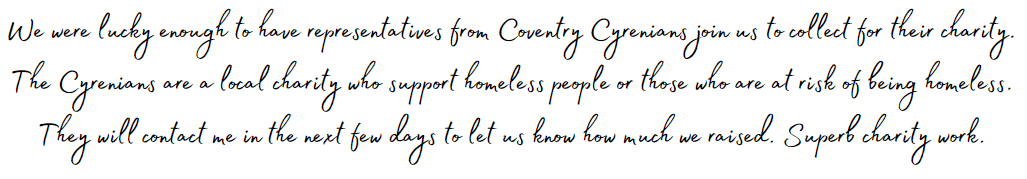 We were lucky enough to have representatives from Coventry Cyrenians join us to collect for their charity.
The Cyrenians are a local charity who support homeless people or those who are at risk of being homeless.
They will contact me in the next few days to let us know how much we raised. Superb charity work.